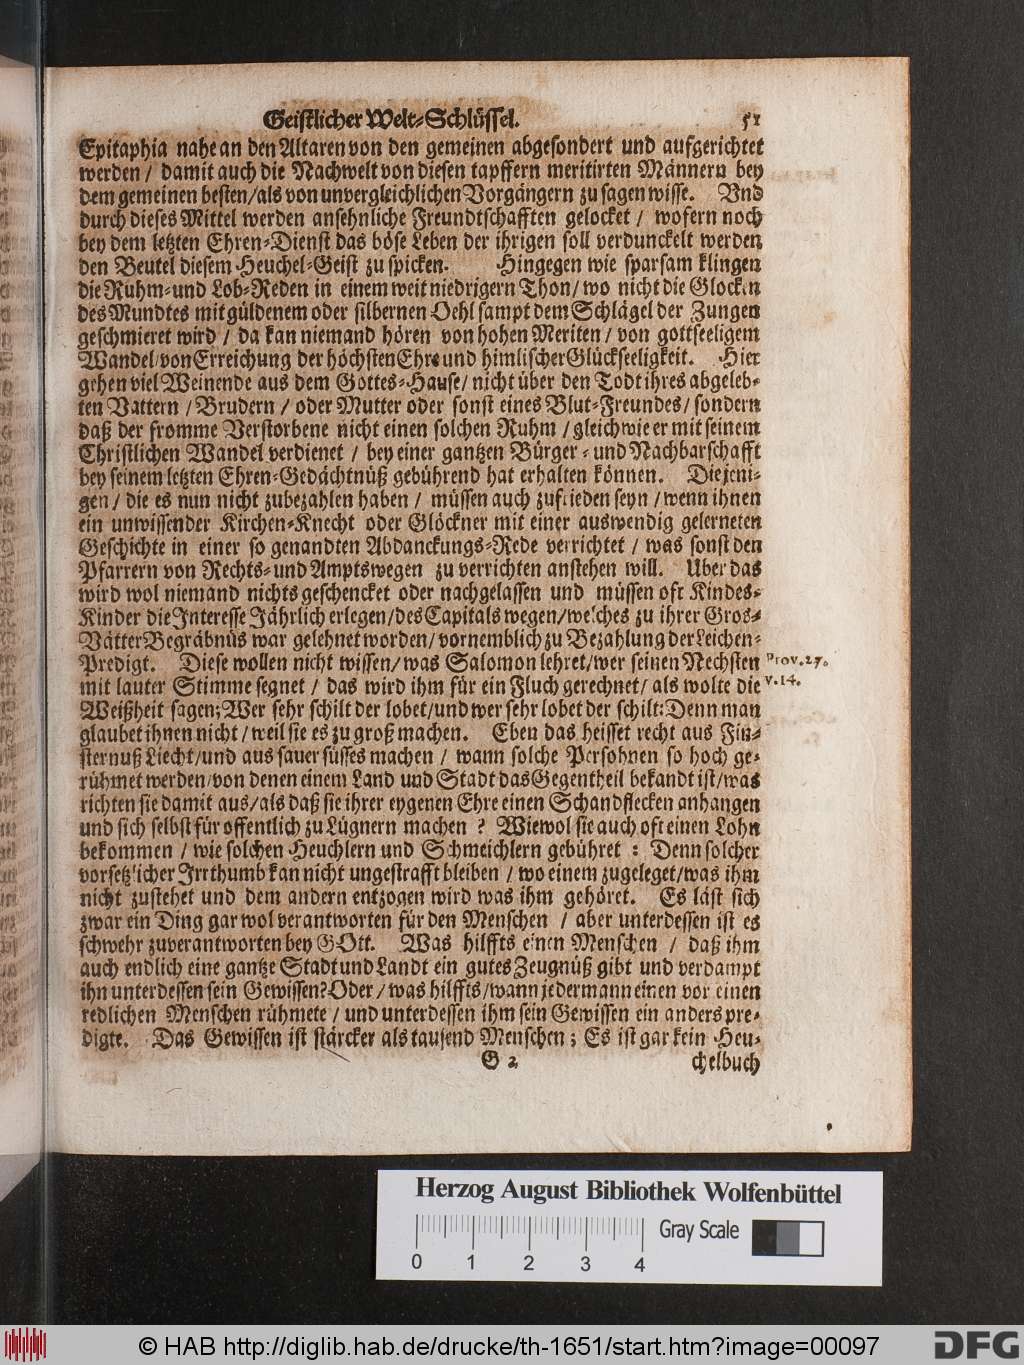 Geistlicher Welt-Schlüssel. 51
Epitaphia nahe an den Altaren von den gemeinen abgesondert und aufgerichtet
werden / damit auch die Nachwelt von diesen tapffern meritirten Männern bey
dem gemeinen besten/als von unvergleichlichen Vorgängern zu sagen wisse. Und
durch dieses Mittel werden ansehnliche Freundtschafften gelocket / wofern noch
bey dem letzten Ehren-Dienst das böse Leben der ihrigen soll verdunckelt werden
den Beutel diesem Heuchel-Geist zu spicken. Hingegen wie sparsam klingen
die Ruhm- und Lob-Reden in einem weit niedrigern Thon/wo nicht die Glocken
des Mundtes mit güldenem oder silbernen Oehl sampt dem Schlägel der Zungen
geschmieret wird / da kan niemand hören von hohen Meriten / von gottseeligem
Wandel/von Erreichung der höchsten Ehre und himlischer Glückseeligkeit. Hier
gehen viel Weinende aus dem Gottes-Hause/ nicht über den Todt ihres abgeleb-
ten Vattern / Brudern / oder Mutter oder sonst eines Blut-Freundes/ sondern
daß der fromme Verstorbene nicht einen solchen Ruhm / gleich wie er mit seinem
Christlichen Wandel verdienet / bey einer gantzen Bürger- und Nachbarschafft
bey seinem letzten Ehren-Gedächtnüß gebührend hat erhalten können. Diejeni-
gen / die es nun nicht zubezahlen haben / müssen auch zufrieden seyn / wenn ihnen
ein unwissender Kirchen-Knecht oder Glöckner mit einer auswendig gelerneten
Geschichte in einer so genandten Abdanckungs-Rede verrichtet / was sonst den
Pfarrern von Rechts- und Amptswegen zu verrichten anstehen will. Uber das
wird wol niemand nichts geschencket oder nachgelassen und müssen oft Kindes-
Kinder die Interesse Jährlich erlegen/des Capitals wegen/welches zu ihrer Gros-
Vätter Begräbnüs war gelehnet worden/ vornemblich zu Bezahlung der Leichen-
Predigt. Diese wollen nicht wissen/was Salomon lehret/wer seinen Nechsten
Prov. 27.
mit lauter Stimme segnet / das wird ihm für ein Fluch gerechnet/ als wolte die
v. 14.
Weißheit sagen; Wer sehr schilt der lobet/und wer sehr lobet der schilt: Denn man
glaubet ihnen nicht / weil sie es zu groß machen. Eben das heisset recht aus Fin-
sternuß Liecht/und aus sauer süsses machen / wann solche Persohnen so hoch ge-
rühmet werden/von denen einem Land und Stadt das Gegentheil bekandt ist/was
richten sie damit aus/als daß sie ihrer eygenen Ehre einen Schandflecken anhangen
und sich selbst für offentlich zu Lügnern machen ? Wiewol sie auch oft einen Lohn
bekommen / wie solchen Heuchlern und Schmeichlern gebühret : Denn solcher
vorsetzlicher Irrthumb kan nicht ungestrafft bleiben / wo einem zugeleget/was ihm
nicht zustehet und dem andern entzogen wird was ihm gehöret. Es läst sich
zwar ein Ding gar wol verantworten für den Menschen / aber unterdessen ist es
schwehr zuverantworten bey GOtt. Was hilffts einen Menschen / daß ihm
auch endlich eine gantze Stadt und Landt ein gutes Zeugnüß gibt und verdampt
ihn unterdessen sein Gewissen? Oder / was hilffts/wann jedermann einen vor einen
redlichen Menschen rühmete / und unterdessen ihm sein Gewissen ein anders pre-
digte. Das Gewissen ist stärcker als tausend Menschen; Es ist gar kein Heu-
G 2 chelbuch
Herzog August Bibliothek Wolfenbüttel
Gray Scale
0 1 2 3 4
© HAB http://diglib.hab.de/drucke/th-1651/start.htm?image=00097
DFG